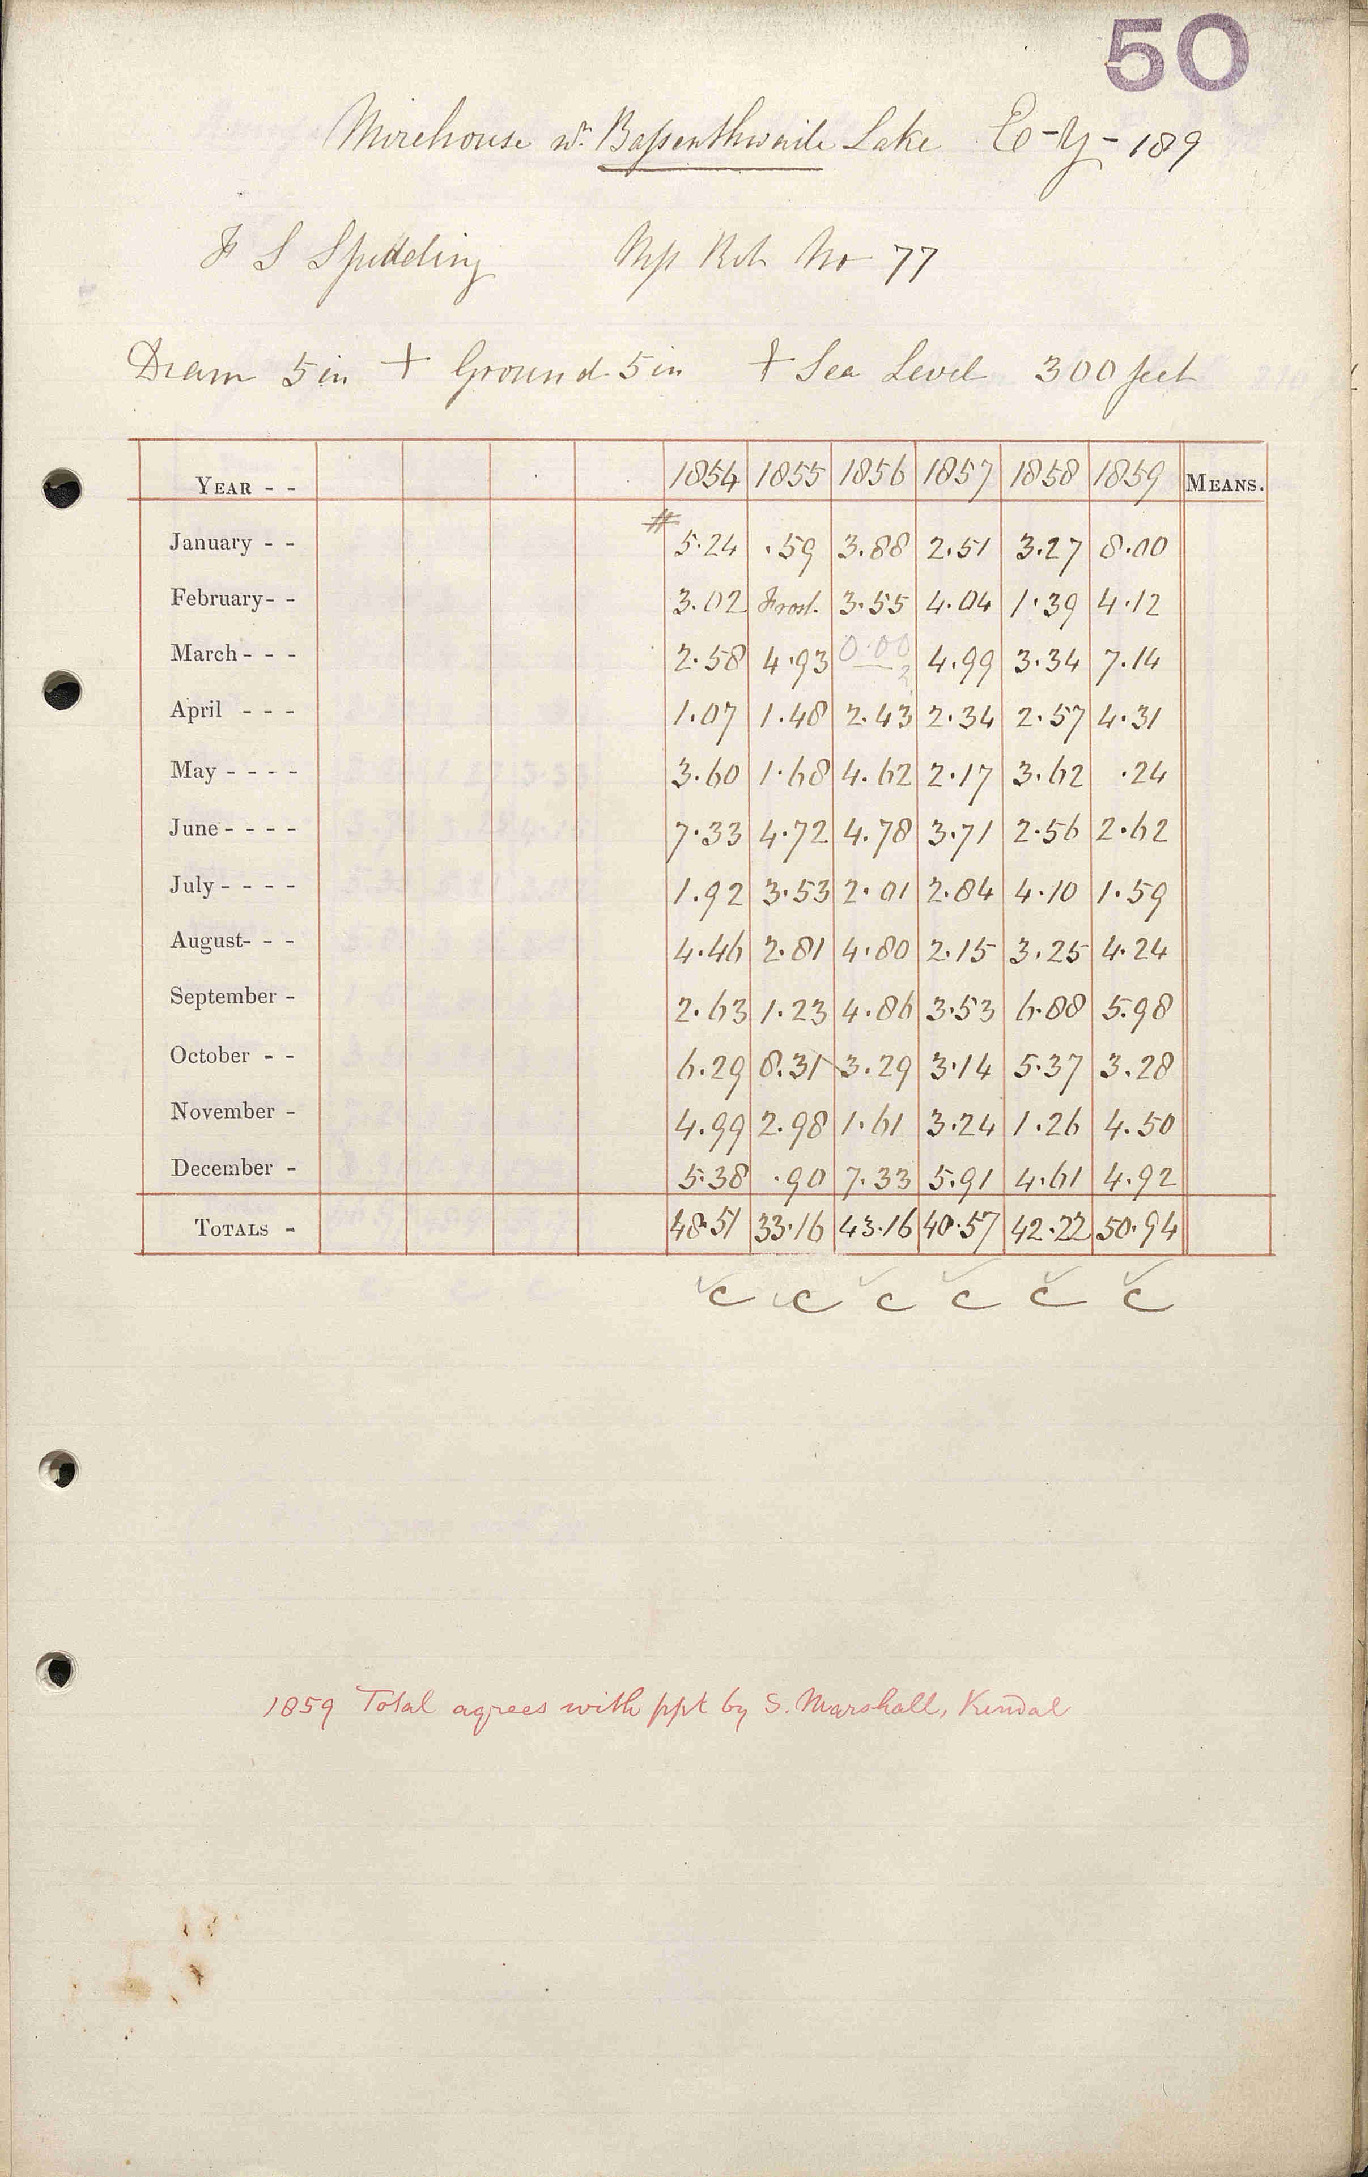 50
Mirehouse nr. Bassenthwaite Lake E-y-189
F S Spedding Mss Ret No 77
Diam 5 in + Ground 5 in + Sea Level 300 feet
YEAR - - 1854 1855 1856 1857 1858 1859 MEANS.
January - - # 5.24 .59 3.88 2.51 3.27 8.00
February- - 3.02 Frost. 3.55 4.04 1.39 4.12
March - - - 2.58 4.93 0.00 2 4.99 3.34 7.14
April - - - 1.07 1.48 2.43 2.34 2.57 4.31
May - - - - 3.60 1.68 4.62 2.17 3.62 .24
June - - - - 7.33 4.72 4.78 3.71 2.56 2.62
July - - - - 1.92 3.53 2.01 2.84 4.10 1.59
August- - - 4.46 2.81 4.80 2.15 3.25 4.24
September - 2.63 1.23 4.86 3.53 6.88 5.98
October - - 6.29 8.31 3.29 3.14 5.37 3.28
November - 4.99 2.98 1.61 3.24 1.26 4.50
December - 5.38 .90 7.33 5.91 4.61 4.92
TOTALS - 48.51 33.16 43.16 40.57 42.22 50.94
c c c c c c
1859 Total agrees with ppt by S. Marshall, Kendal